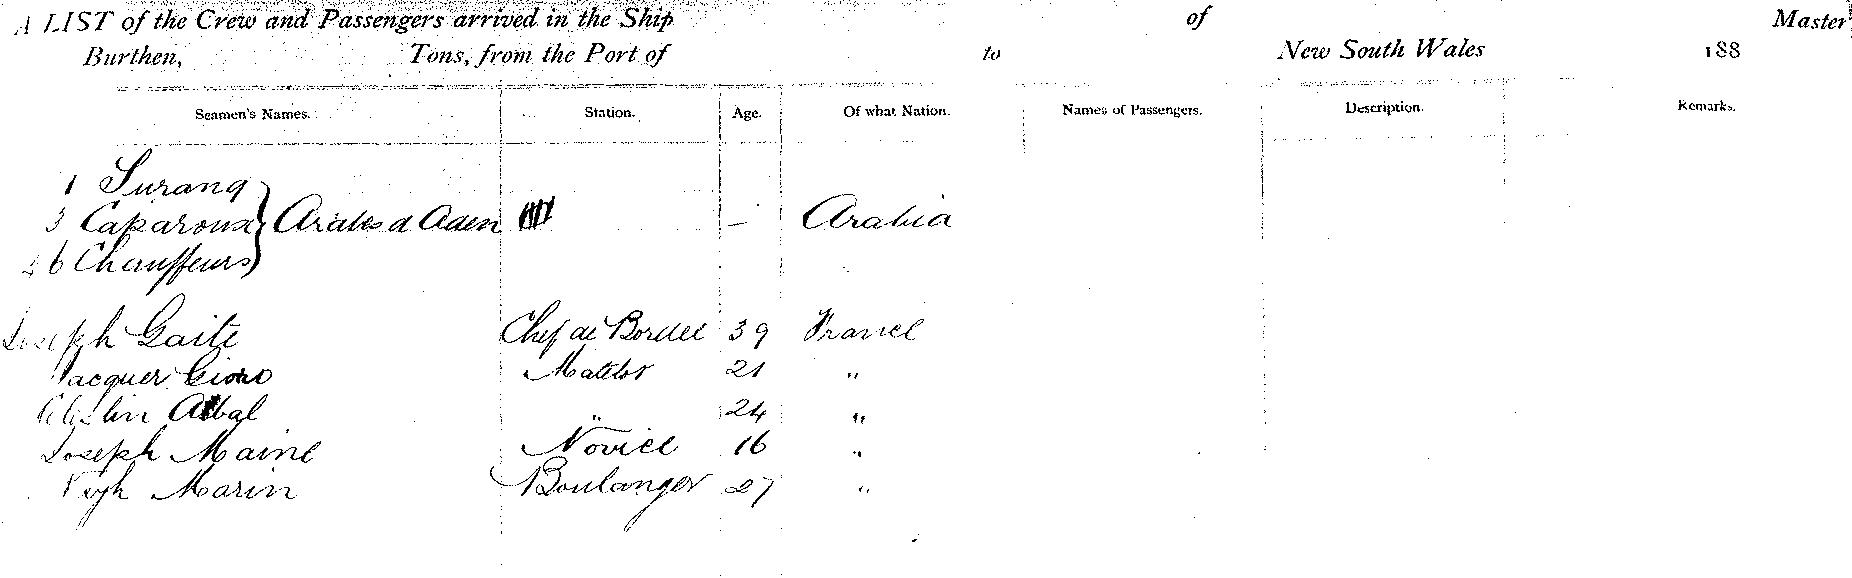 A LIST of the Crew and Passengers arrived in the Ship of Master
Burthen, Tons, from the Port of to New South Wales 188
Seamen's Names. Station. Age. Of what Nation. Names of Passengers. Description. Remarks.
1 Surang
3 Caparoux Arabes d Aden — Arabia
6 Chauffeurs
Joseph Gaite Chef de Bordee 39 France
Jacques Matelot 21 "
" 24 "
Joseph Maine Novice 16 "
Marin Boulanger 27 "